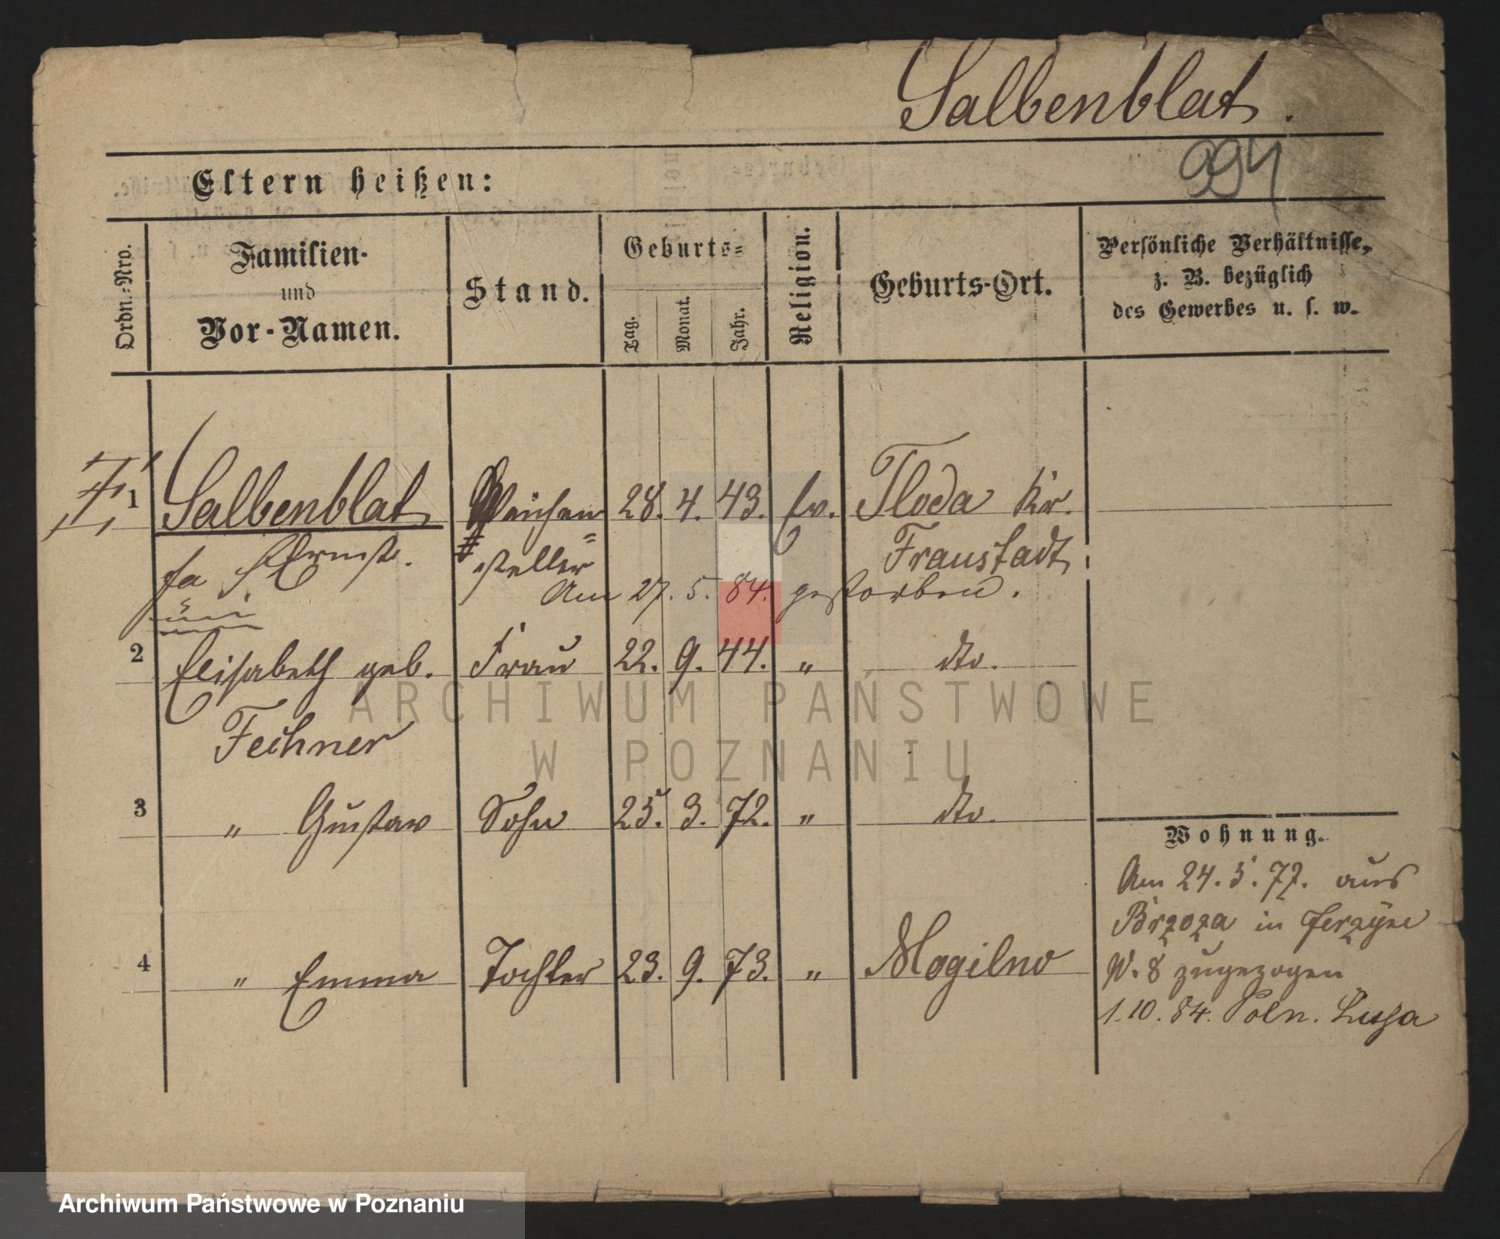 Salbenblat.
994
Eltern heißen:
Ordn.-Nro.
Familien-
und
Vor-Namen.
Stand.
Geburts-
Tag.
Monat.
Jahr.
Religion.
Geburts-Ort.
Persönliche Verhältnisse,
z. B. bezüglich
des Gewerbes u. s. w.
1 Salbenblat Weichen= 28. 4. 43. Ev. Tloda Kr.
Ernst. steller Fraustadt
Am 27. 5. 84. gestorben.
2 Elisabeth geb. Frau 22. 9. 44. " dto.
Fechner
3 " Gustav Sohn 25. 3. 72. " dto.
4 " Emma Tochter 23. 9. 73. " Mogilno
Wohnung.
Am 24. 5. 77. aus
Brzoza in Jerzyce
W. 8 zugezogen
1. 10. 84. Poln. Lissa
ARCHIWUM PAŃSTWOWE
W POZNANIU
Archiwum Państwowe w Poznaniu